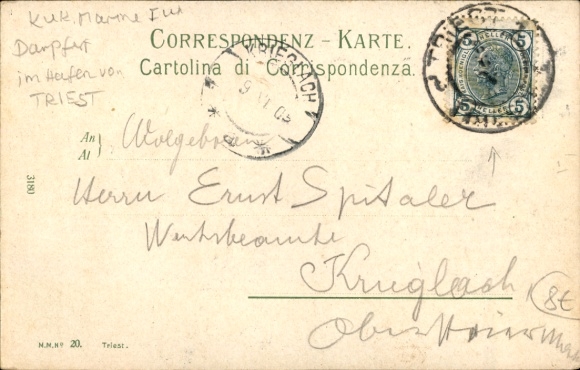 K.u.K. Marine
Dampfer
im Hafen von
TRIEST
CORRESPONDENZ - KARTE.
Cartolina di Corrispondenza.
TRIEST
5 HELLER 5
5 HELLER 5
KRIEGLACH
9 VI 05
An
Al
Wolgeboren
Herrn Ernst Spitaler
Werksbeamte
Krieglach
8€
Obersteiermark
3180
M.M.Nº 20. Triest.